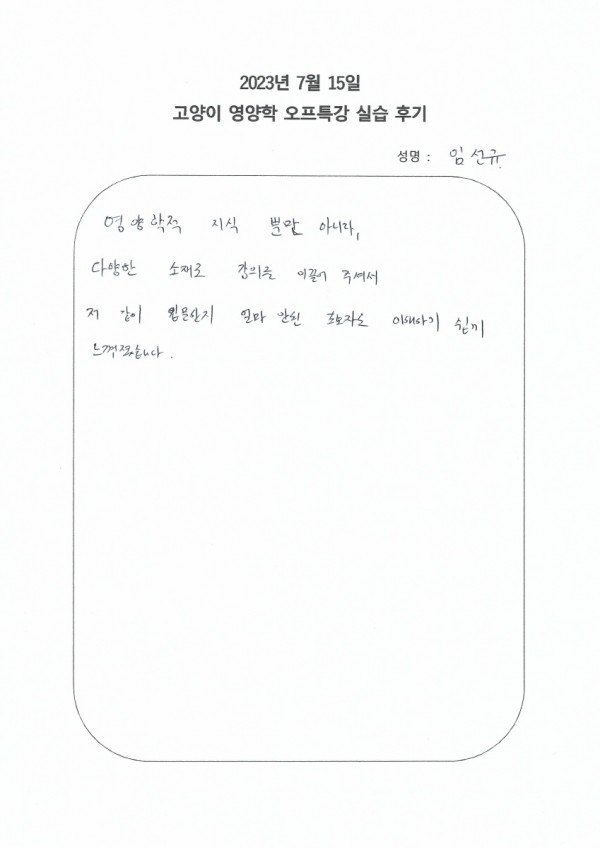 2023년 7월 15일
고양이 영양학 오프특강 실습 후기
성명 : 임선규
영양학적 지식 뿐만 아니라,
다양한 소재로 강의를 이끌어 주셔서
저 같이 입문한지 얼마 안된 초보자도 이해하기 쉽게
느껴졌습니다.